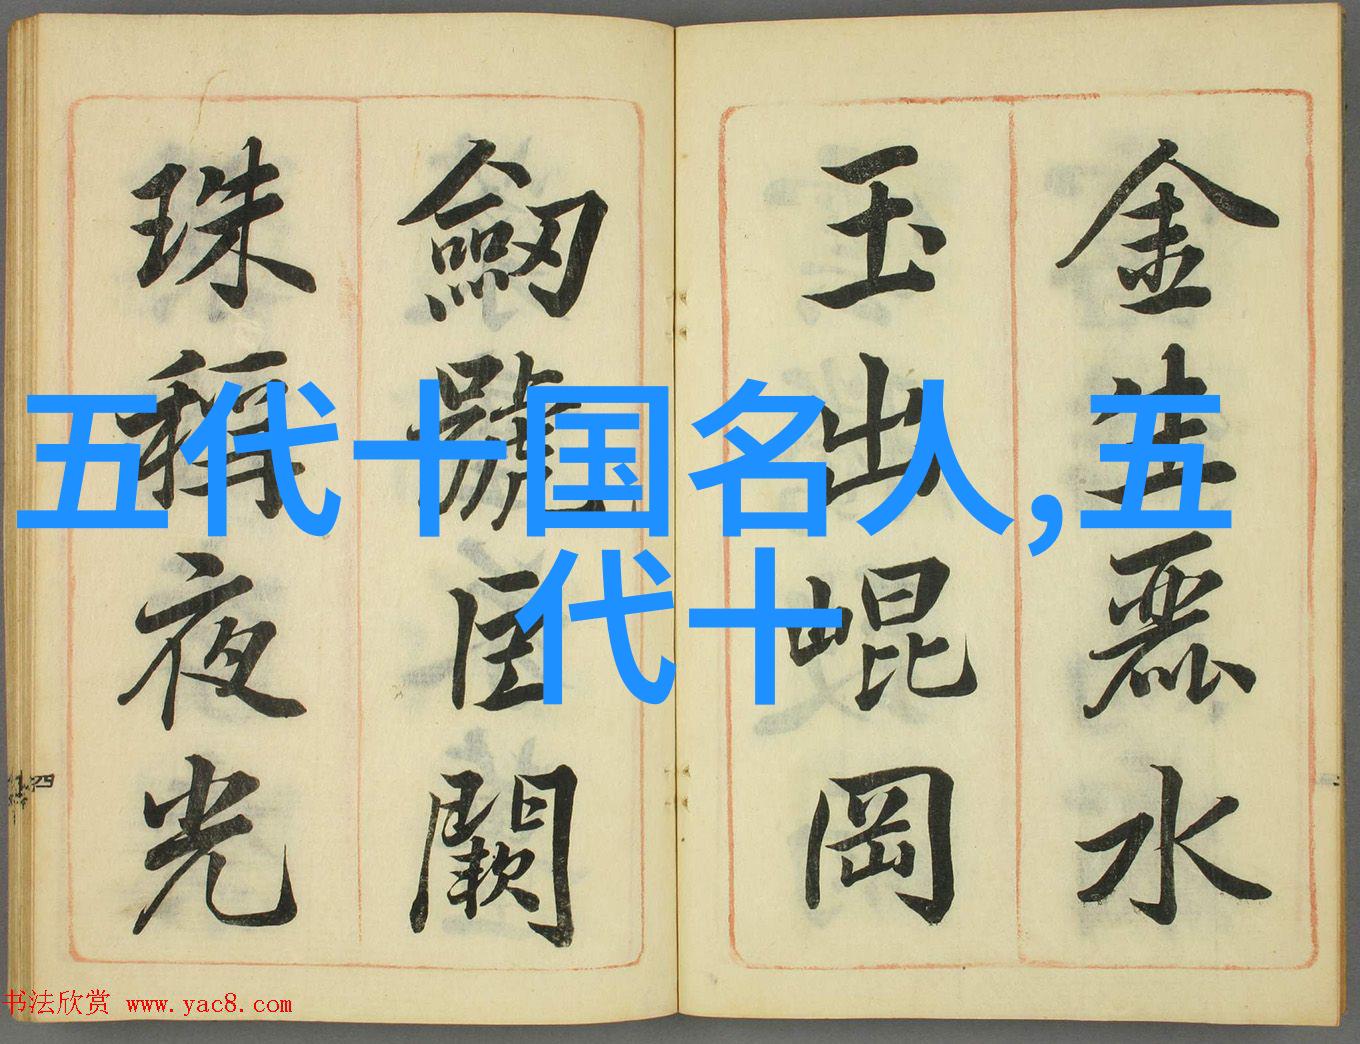 金生麗水
玉出崐岡
劒號巨闕
珠稱夜光
五代十国名人,五
代十
四
书法欣赏 www.yac8.com